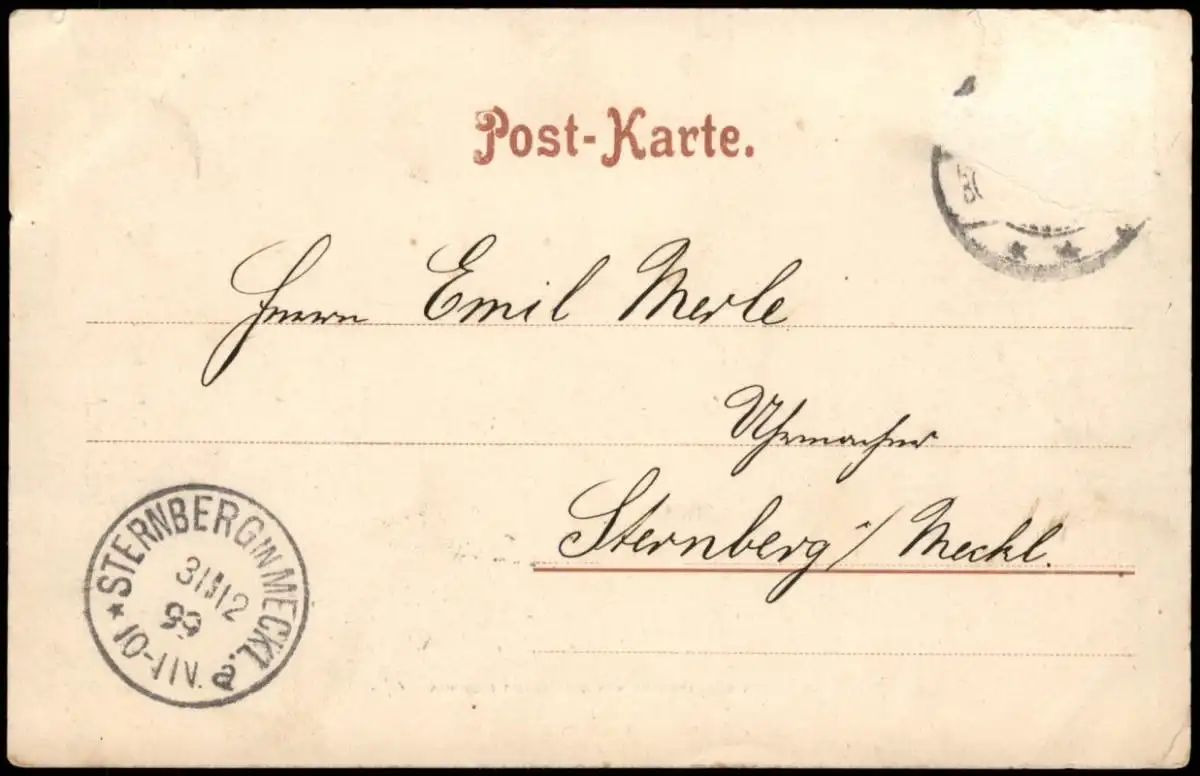 Post-Karte.
Herrn Emil Merle
Uhrmacher
Sternberg i/ Meckl.
STERNBERG IN MECKL.
31 12
99
10-11V. a